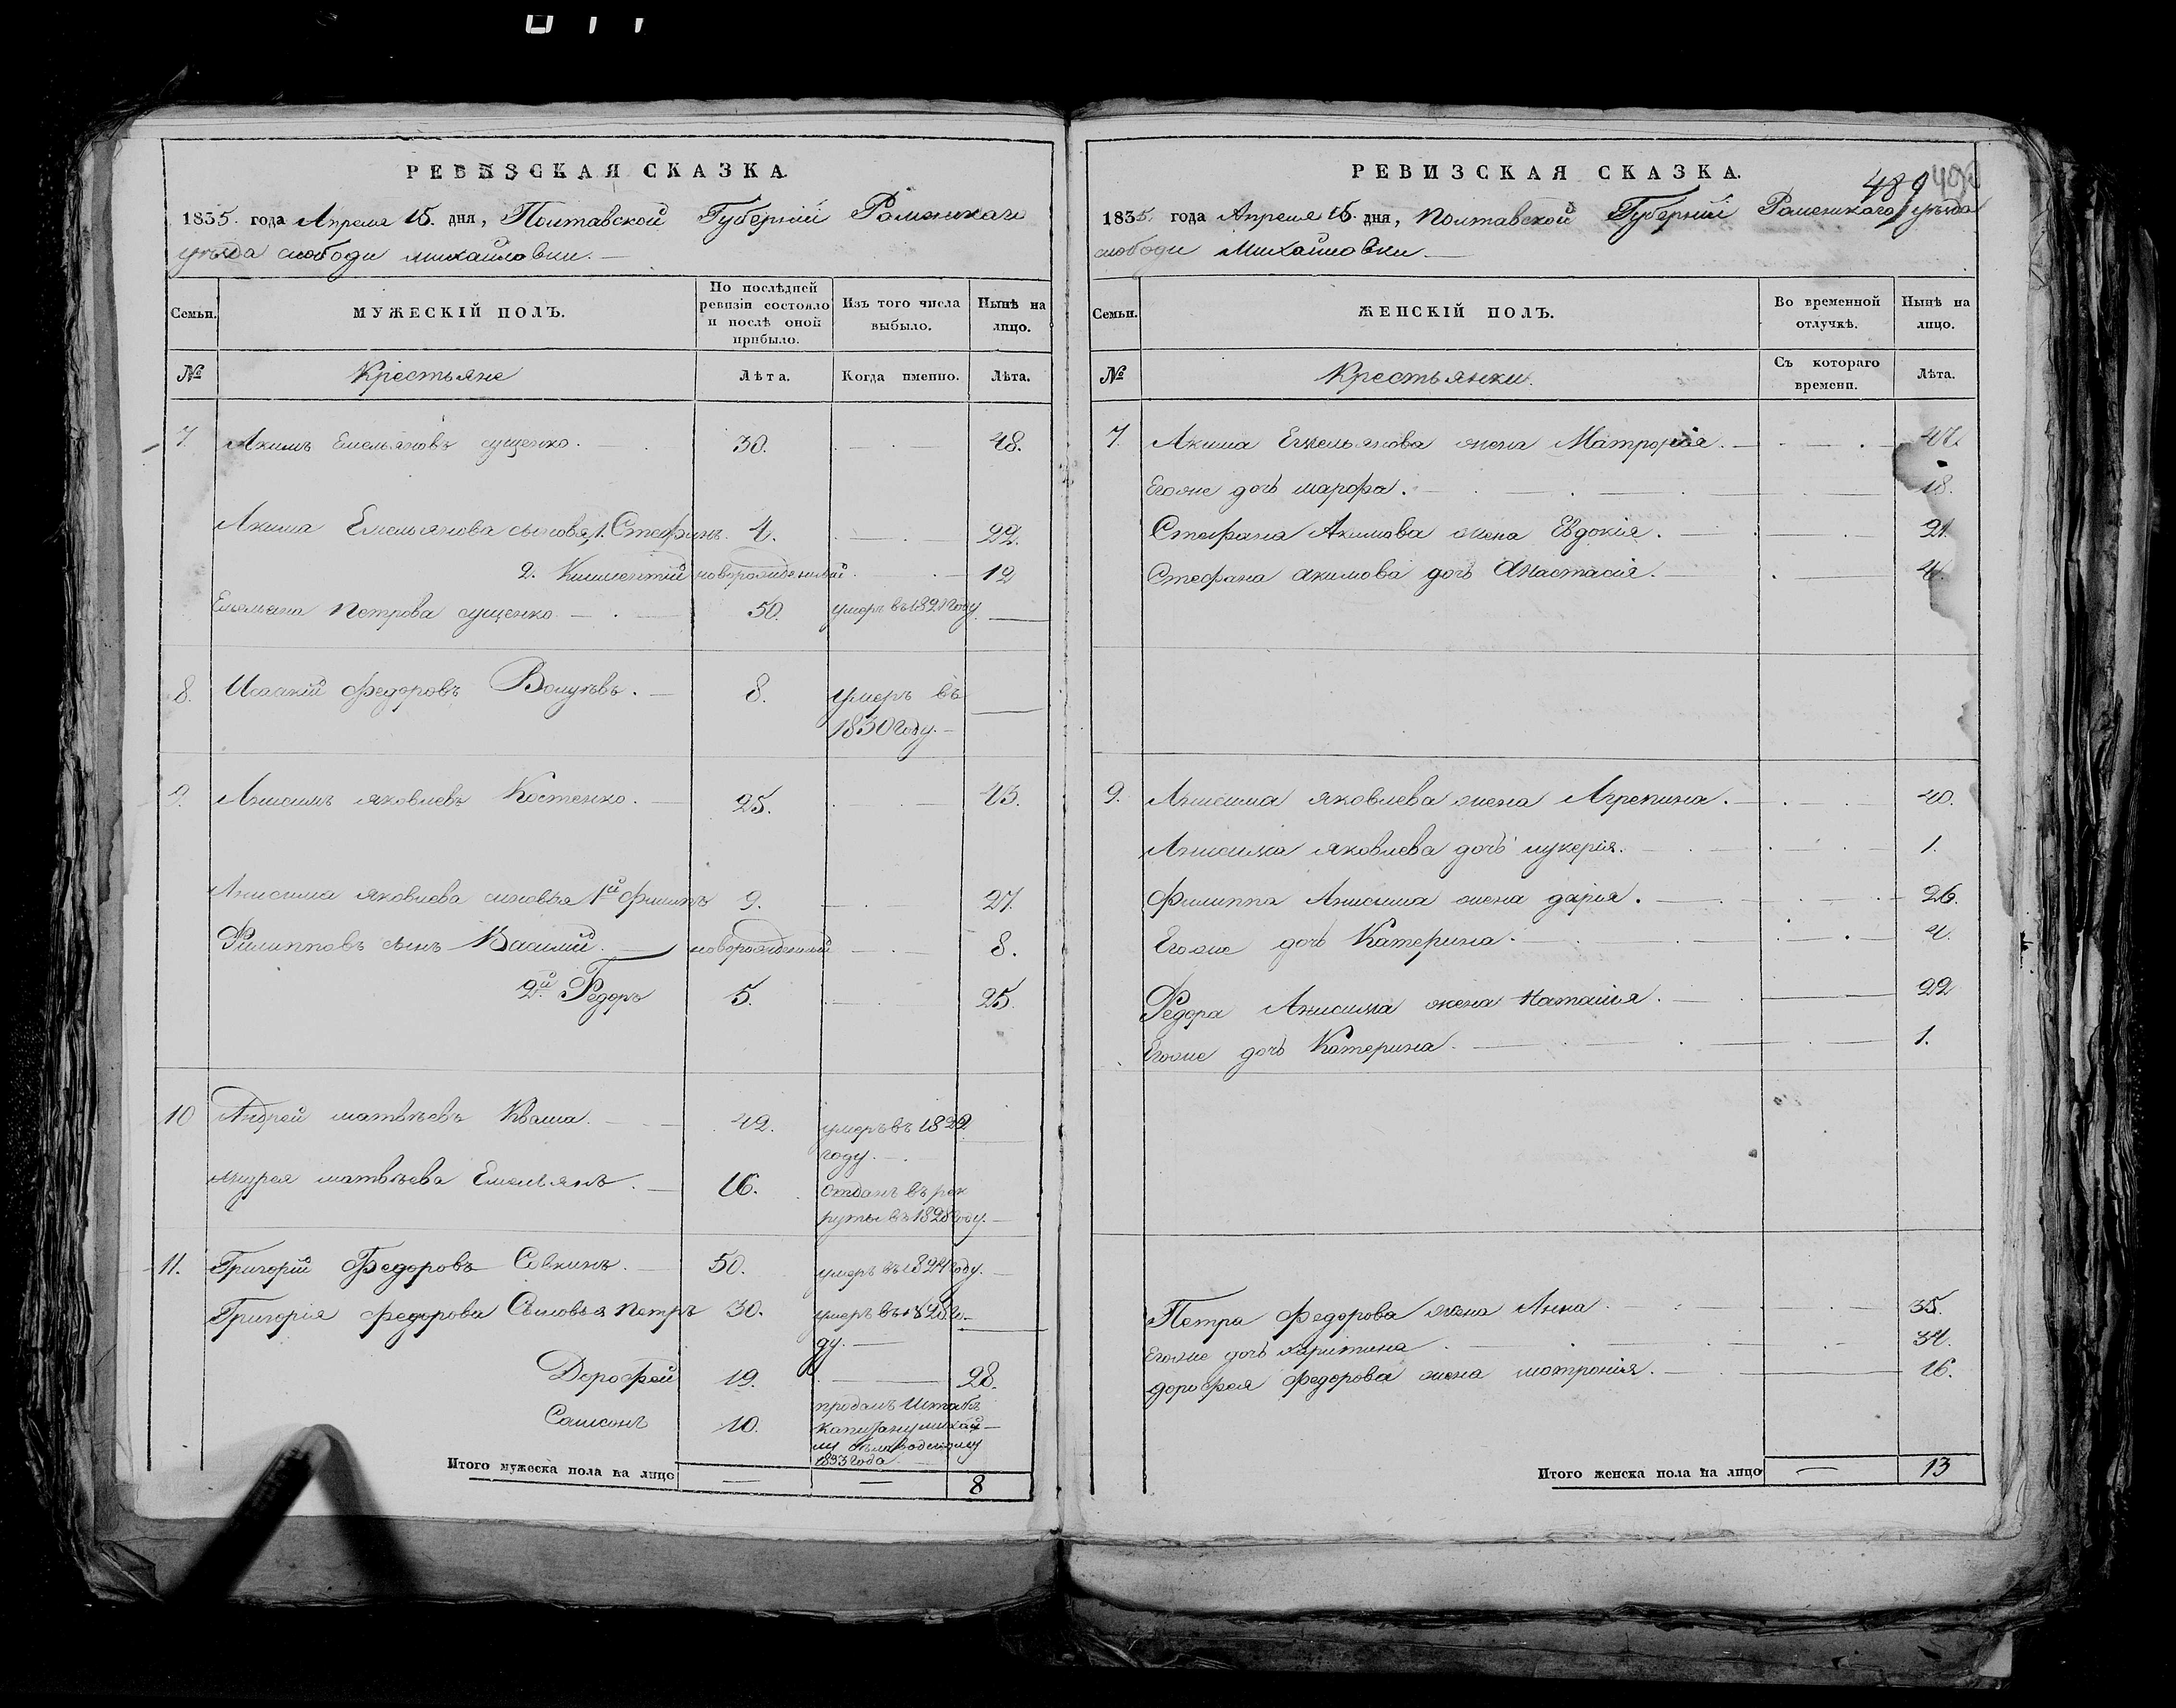 РЕВИЗСКАЯ СКАЗКА.
1835. года Апреля 15. дня, Полтавской Губерній Роменскаго
уѣзда слободи михайловки. —
Семьи.
МУЖЕСКІЙ ПОЛЪ.
По послѣдней ревизіи состояло и послѣ оной прибыло.
Изъ того числа выбыло.
Нынѣ на лицо.
№
Крестьяне
Лѣта.
Когда именно.
Лѣта.
7. Акимъ Емельяновъ сущенко. — 30. 48.
Акима Емельянова сыновья, 1. Стефанъ. 4. 22.
2. Климентій новорожденный. 12
Емельяна Петрова сущенко — 50. умеръ въ 1821 году. —
8. Исаакій Федоровъ — 8. умеръ въ —
1830 году. —
9. Анисимъ яковлевъ Костенко. — 25. 43.
Анисима яковлева синовья 1й Филипъ 9. 27.
Филипповъ сынъ Василій. — новорожденный 8.
2й. Федоръ 5. 25.
10 Андрей матвѣевъ Кваша. — 42. умеръ въ 1822
году. —
Андрея матвѣева Емельянъ. — 16. отданъ въ рек
руты въ 1828 году. —
11. Григорій Федоровъ Савкинъ. — 50. умеръ въ 1824 году. —
Григорія федорова Сыновья Петръ 30. умеръ въ 1828 го-
ду. —
Дорофей 19. — 28.
Самсонъ 10. проданъ Штабсъ
капитану михай—
1833 года. —
Итого мужеска пола на лицо — — 8
489
РЕВИЗСКАЯ СКАЗКА.
1835. года Апреля 15. дня, Полтавской Губерній Роменскаго уѣзда
слободи Михайловки. —
Семьи.
ЖЕНСКІЙ ПОЛЪ.
Во временной отлучкѣ.
Нынѣ на лицо.
№
Крестьянки.
Съ котораго времени.
Лѣта.
7. Акима Емельянова жена Матронія. — 47.
Егоже дочь марфа. — 18.
Стефана Акимова жена Евдокія. — 21.
Стефана акимова дочь Анастасія. — 4.
9. Анисима яковлева жена Агрепина. — 40.
Анисима яковлева дочь лукерія. — 1.
Филиппа Анисима жена дарія. — 26.
Егоже дочь Катерина. — 4.
Федора Анисима жена Наталія. — 22
Егоже дочь Катерина. — 1.
Петра федорова жена Анна. — 35.
Егоже дочь харитина. —
дорофея федорова жена матронія. — 16.
Итого женска пола на лицо — 13